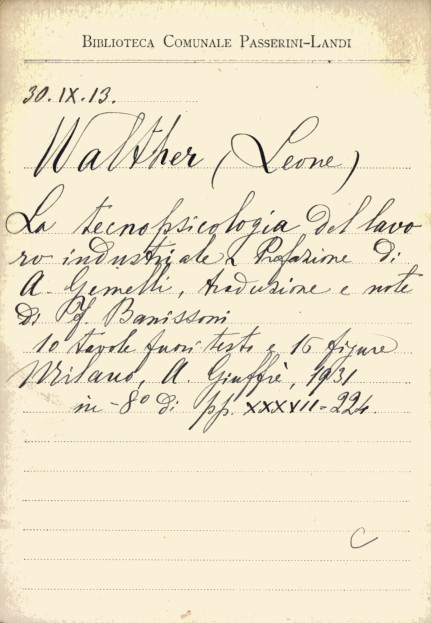 BIBLIOTECA COMUNALE PASSERINI-LANDI
30.IX.13.
Walther (Leone)
La tecnopsicologia del lavo
ro industriale Prefazione di
A. Gemelli, traduzione e note
di Banissoni
10 tavole fuori testo e 16 figure
Milano, A. Giuffrè, 1931
in-8° di pp. XXXVII-224.
C